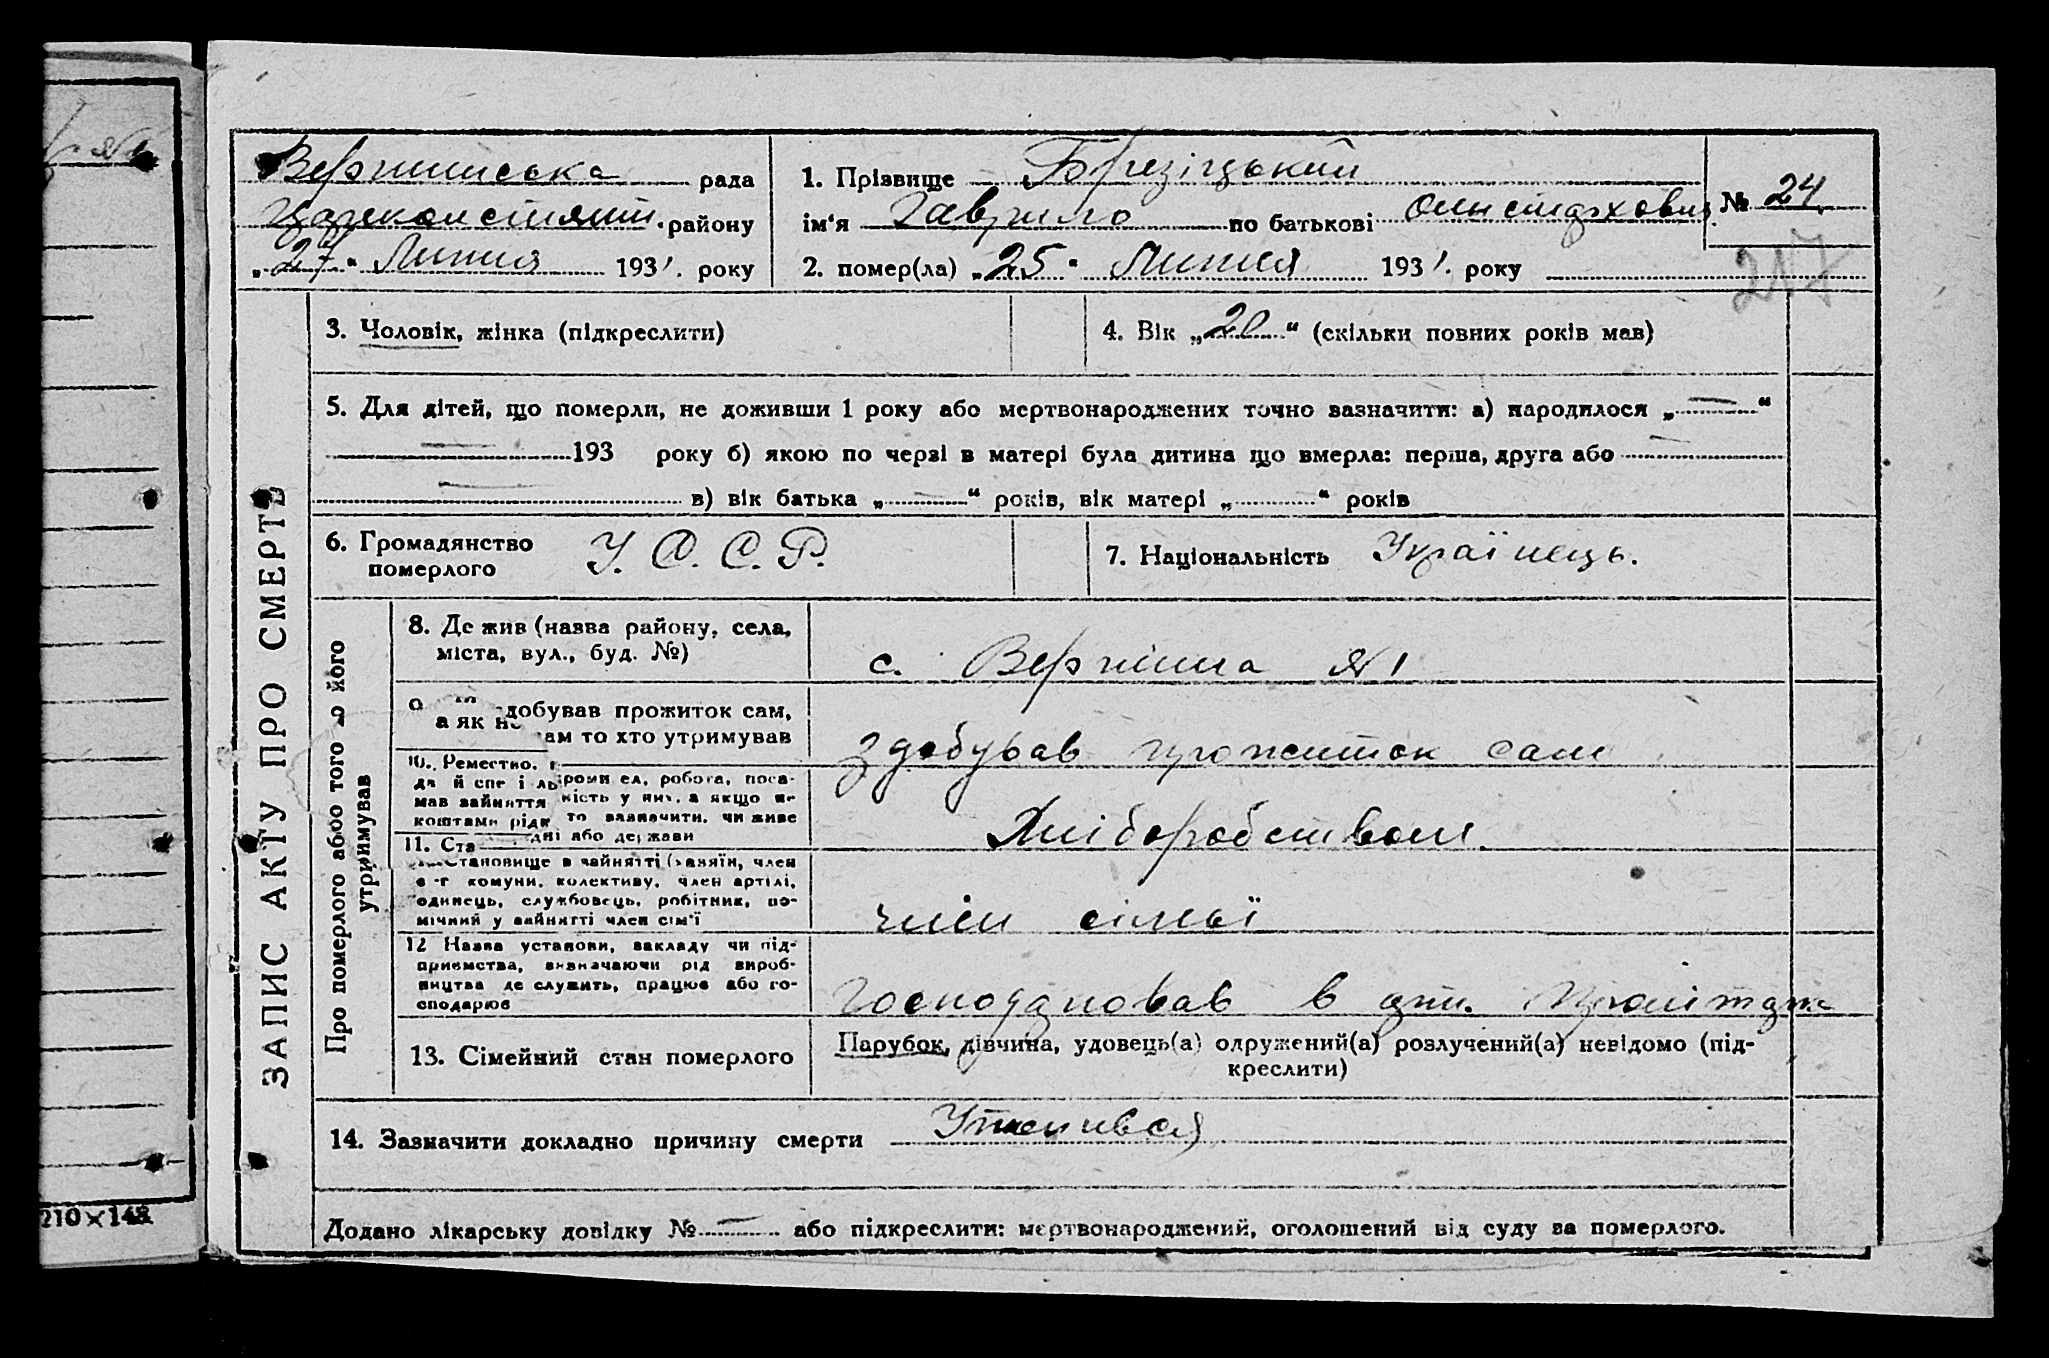 ЗАПИС АКТУ ПРО СМЕРТЬ
Вершинська рада
району
„27“ Липня 1931. року
1. Прізвище Брезіцький
ім'я Гаврило по батькові
2. помер(ла) „25“ Липня 1931. року
№ 24.
217
3. Чоловік, жінка (підкреслити)
4. Вік „20“ (скільки повних років мав)
5. Для дітей, що померли, не доживши 1 року або мертвонароджених точно зазначити: а) народилося „—“
— 193 року б) якою по черзі в матері була дитина що вмерла: перша, друга або —
— в) вік батька „—“ років, вік матері „—“ років
6. Громадянство
померлого
У. С. С. Р.
7. Національність Українець.
Про померлого або того його
утримував
8. Де жив (назва району, села,
міста, вул., буд. №)
с. Вершина №1
добував прожиток сам,
а як не сам то хто утримував
здобував прожиток сам
10. Ремество,
мав зайняття
коштами
або держави
Хліборобством.
11. Ста
Становище в зайнятті (хазяїн, член
с-г комуни, колективу, член артілі,
одинець, службовець, робітник, по-
мічний у зайнятті член сім'ї
член сімьї
12 Назва установи, закладу чи під-
приємства, визначаючи рід вироб-
ництва де служить, працює або го-
сподарює
в
13. Сімейний стан померлого
Парубок, дівчина, удовець(а) одружений(а) розлучений(а) невідомо (під-
креслити)
14. Зазначити докладно причину смерти Утопився
Додано лікарську довідку № — або підкреслити: мертвонароджений, оголошений від суду за померлого.
210×148